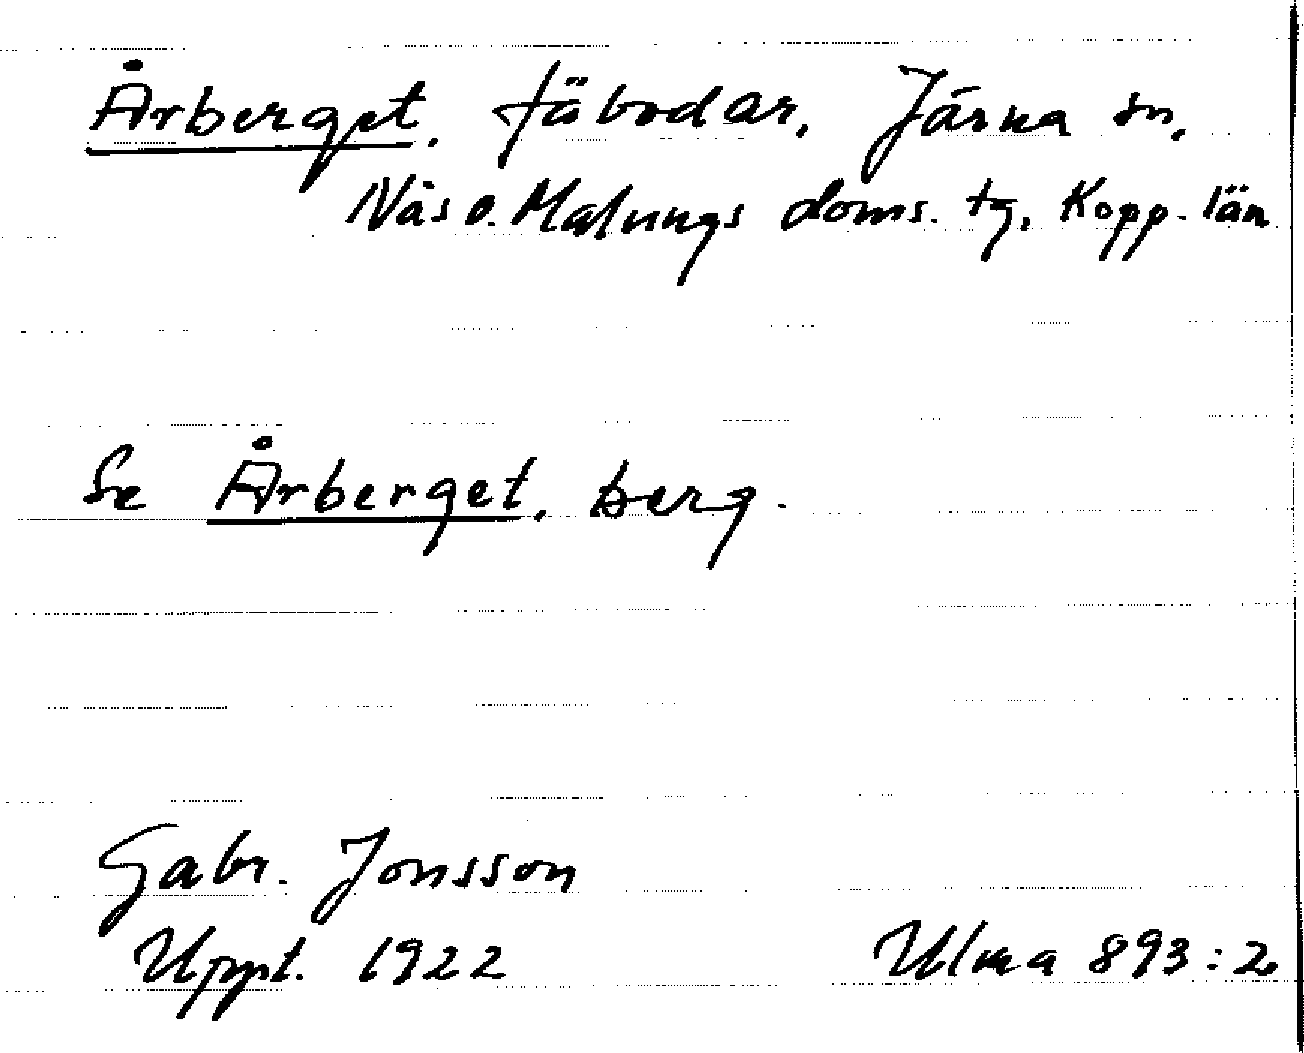 Årberget, fäbodar, Järna sn,
Näs o. Malungs doms. tg, Kopp. län
Se Årberget, berg.
Gabr. Jonsson
Uppt. 1922 Ulma 893:2